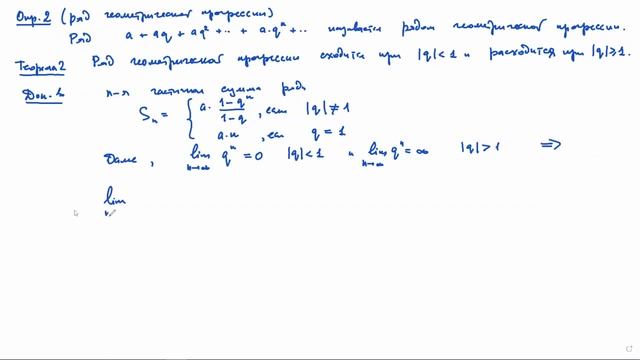 Опр.2 (ряд геометрической прогрессии)
Ряд a + aq + aq² + ... + a·qⁿ + ... называется рядом геометрической прогрессии.
Теорема 2 Ряд геометрической прогрессии сходится при |q| < 1 и расходится при |q| ≥ 1.
Док-во n-я частичная сумма ряда
Sₙ = { a · (1-qⁿ)/(1-q), если |q| ≠ 1
a·n, если q = 1
Далее, lim n→∞ qⁿ = 0 |q| < 1 и lim n→∞ qⁿ = ∞ |q| > 1 ⇒
lim